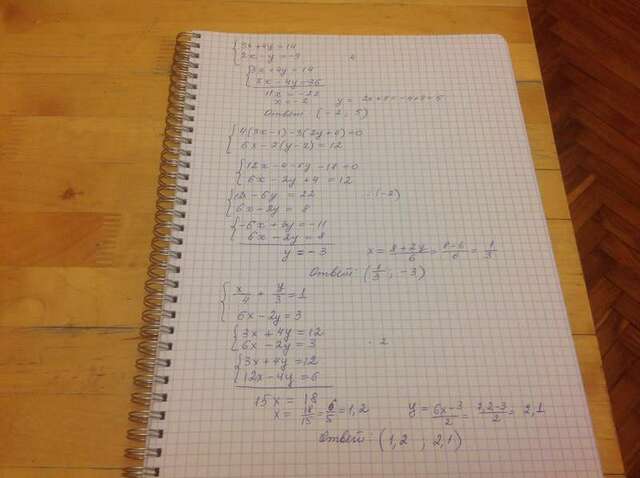 3x+4y=14
2x-y=-9 2
3x+4y=14
8x-4y=-36
11x=-22
x=-2 y=2x+9=-4+9=5
Ответ: (-2; 5)
4(3x-1)-3(2y+6)=0
6x-2(y-2)=12
12x-4-6y-18=0
6x-2y+4=12
12x-6y=22 :(-2)
6x-2y=8
-6x+3y=-11
6x-2y=8
y=-3 x=8+2y/6=8-6/6=1/3
Ответ: (1/3; -3)
x/4+y/3=1
6x-2y=3
3x+4y=12
6x-2y=3 2
3x+4y=12
12x-4y=6
15x=18
x=18/15=6/5=1,2 y=6x-3/2=7,2-3/2=2,1
Ответ: (1,2; 2,1)